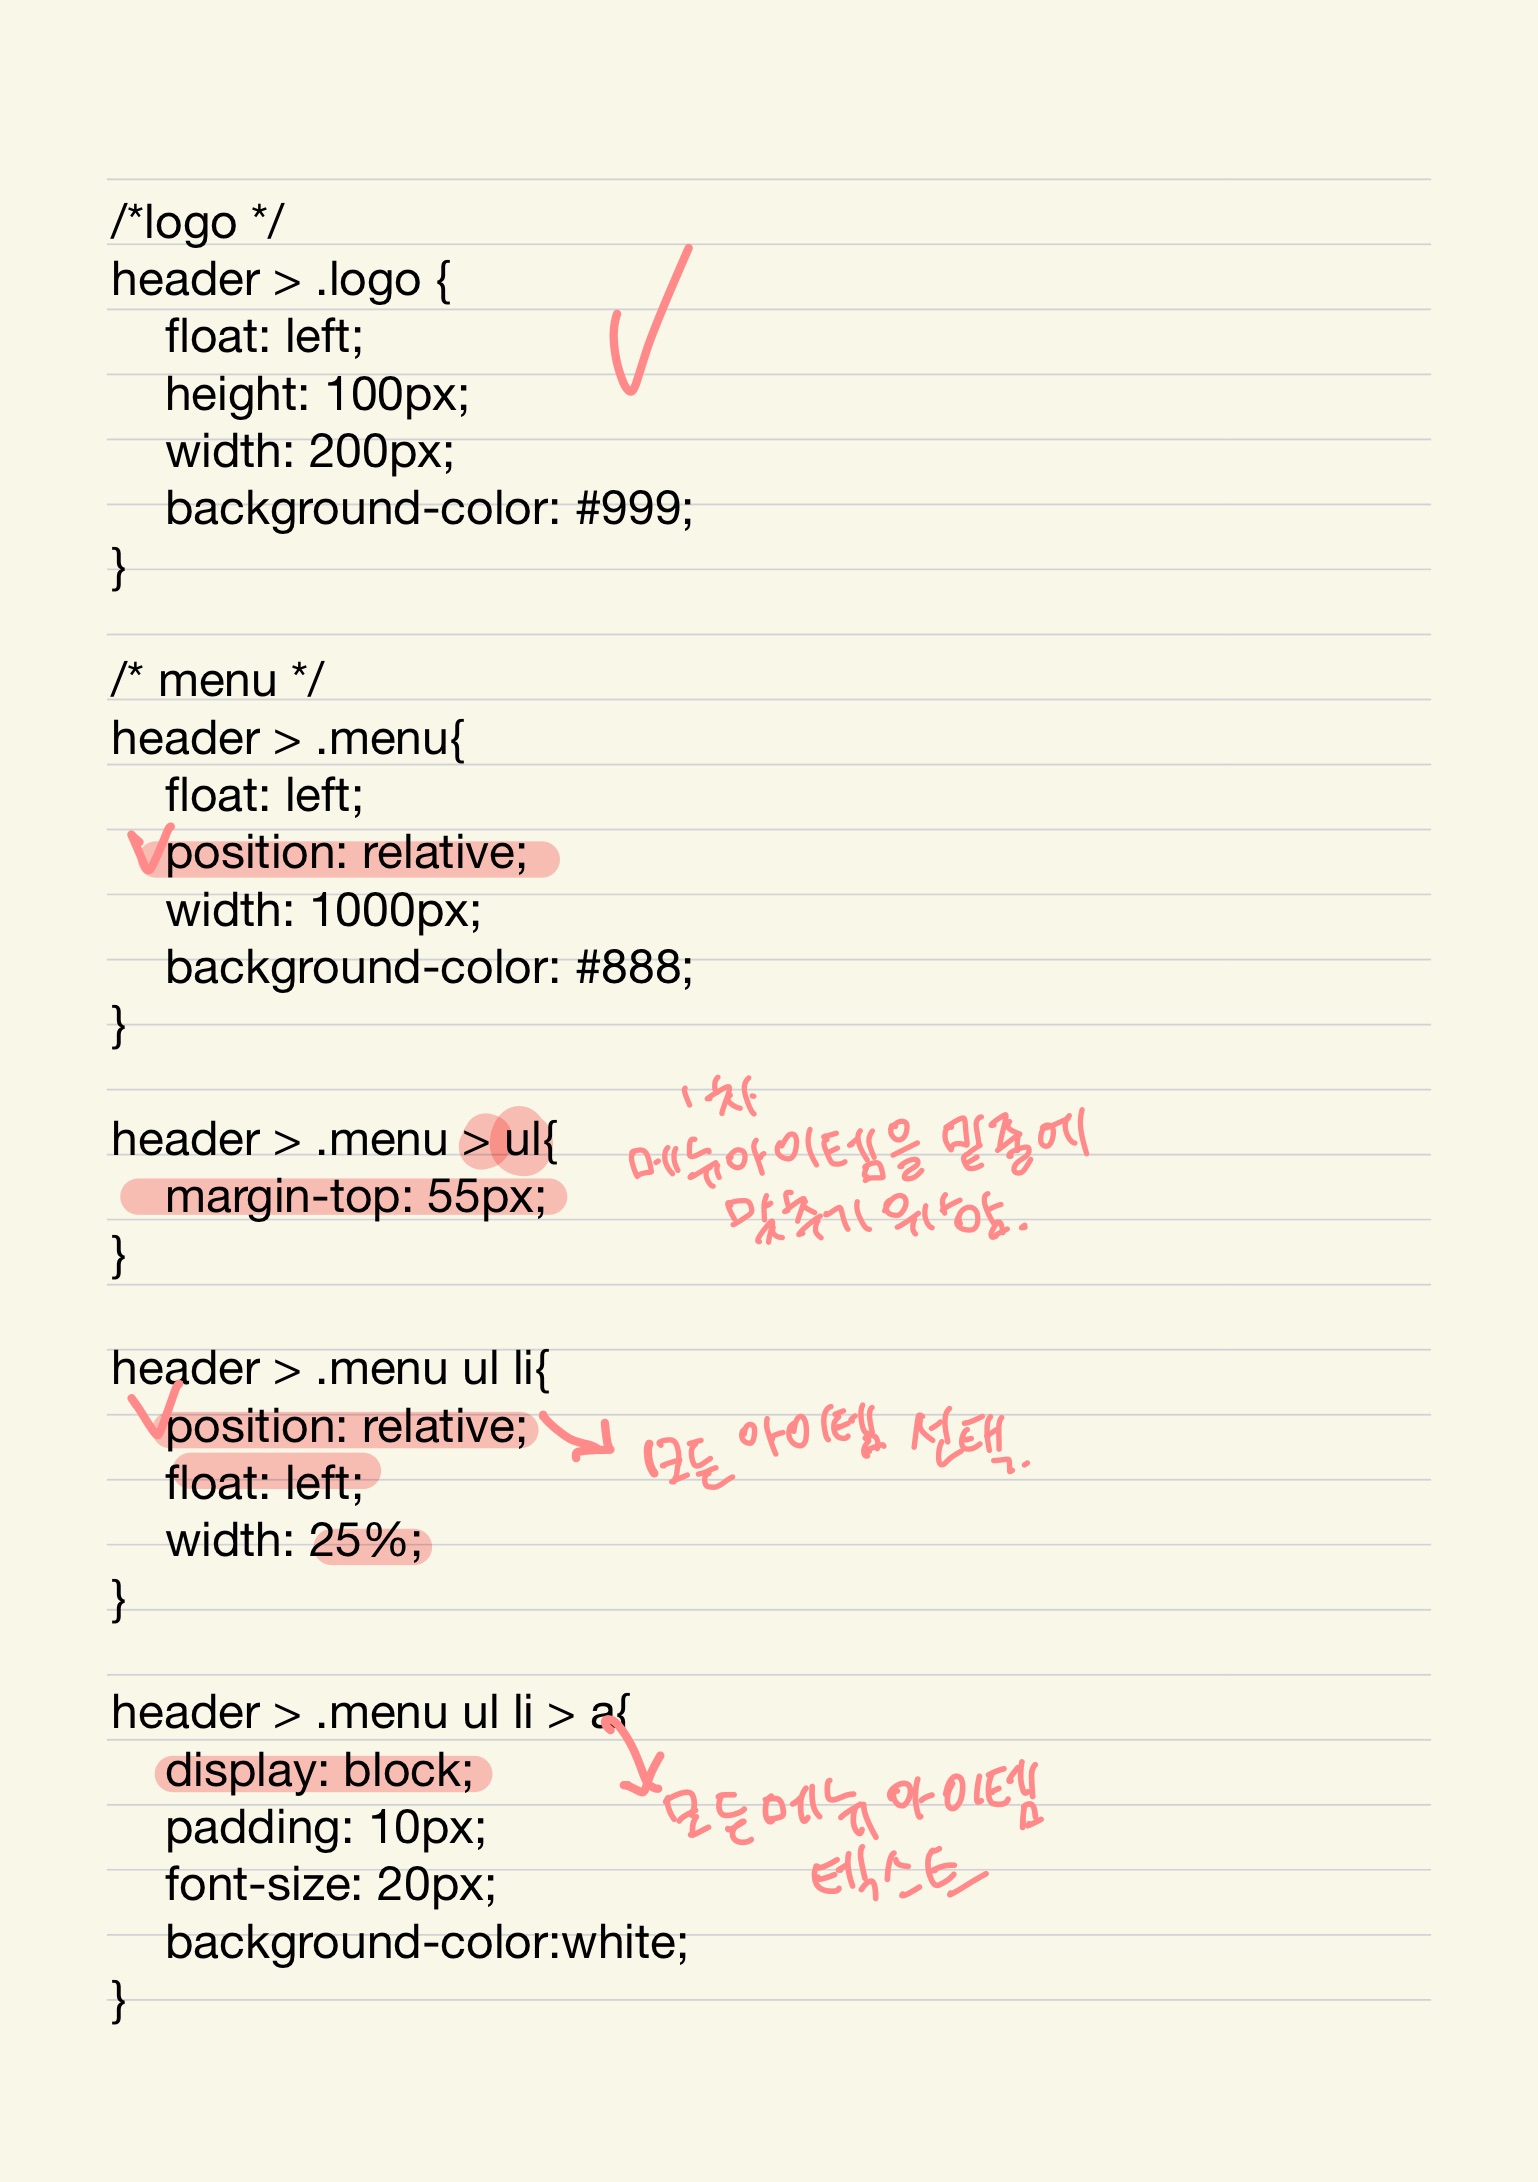 /*logo */
header > .logo {
float: left;
height: 100px;
width: 200px;
background-color: #999;
}
/* menu */
header > .menu{
float: left;
position: relative;
width: 1000px;
background-color: #888;
}
1차
header > .menu > ul{ 메뉴아이템을 밑줄에
margin-top: 55px; 맞추기 위함.
}
header > .menu ul li{
position: relative; 모든 아이템 선택.
float: left;
width: 25%;
}
header > .menu ul li > a{
display: block; 모든메뉴 아이템
padding: 10px; 텍스트
font-size: 20px;
background-color:white;
}